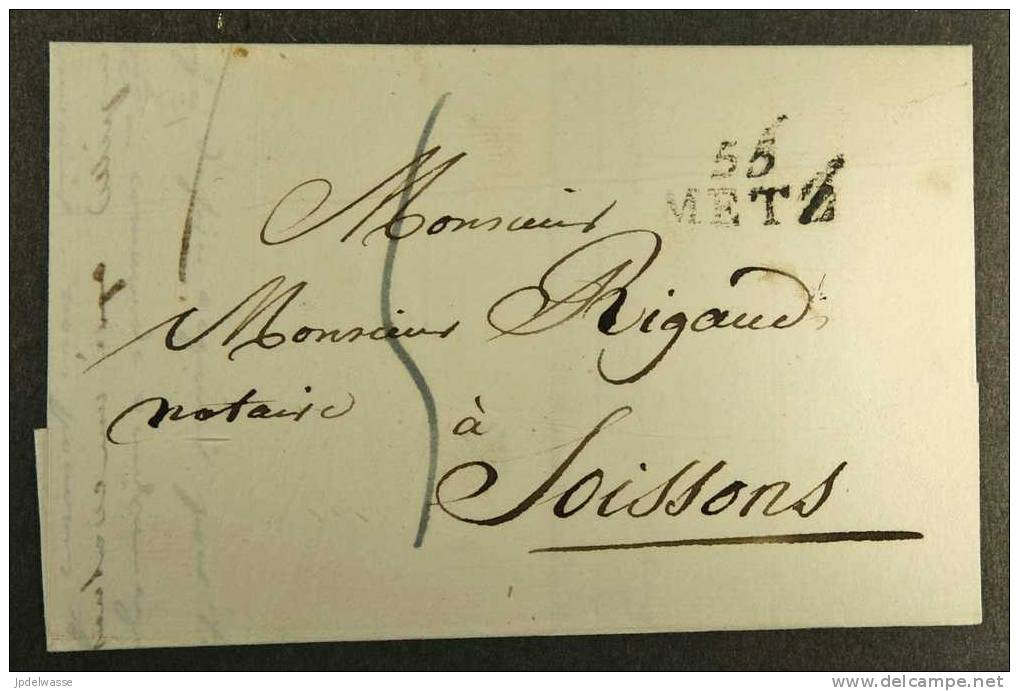 55
METZ
Monsieur
Monsieur Rigaud
notaire à
Soissons
jpdelwasse
www.delcampe.net